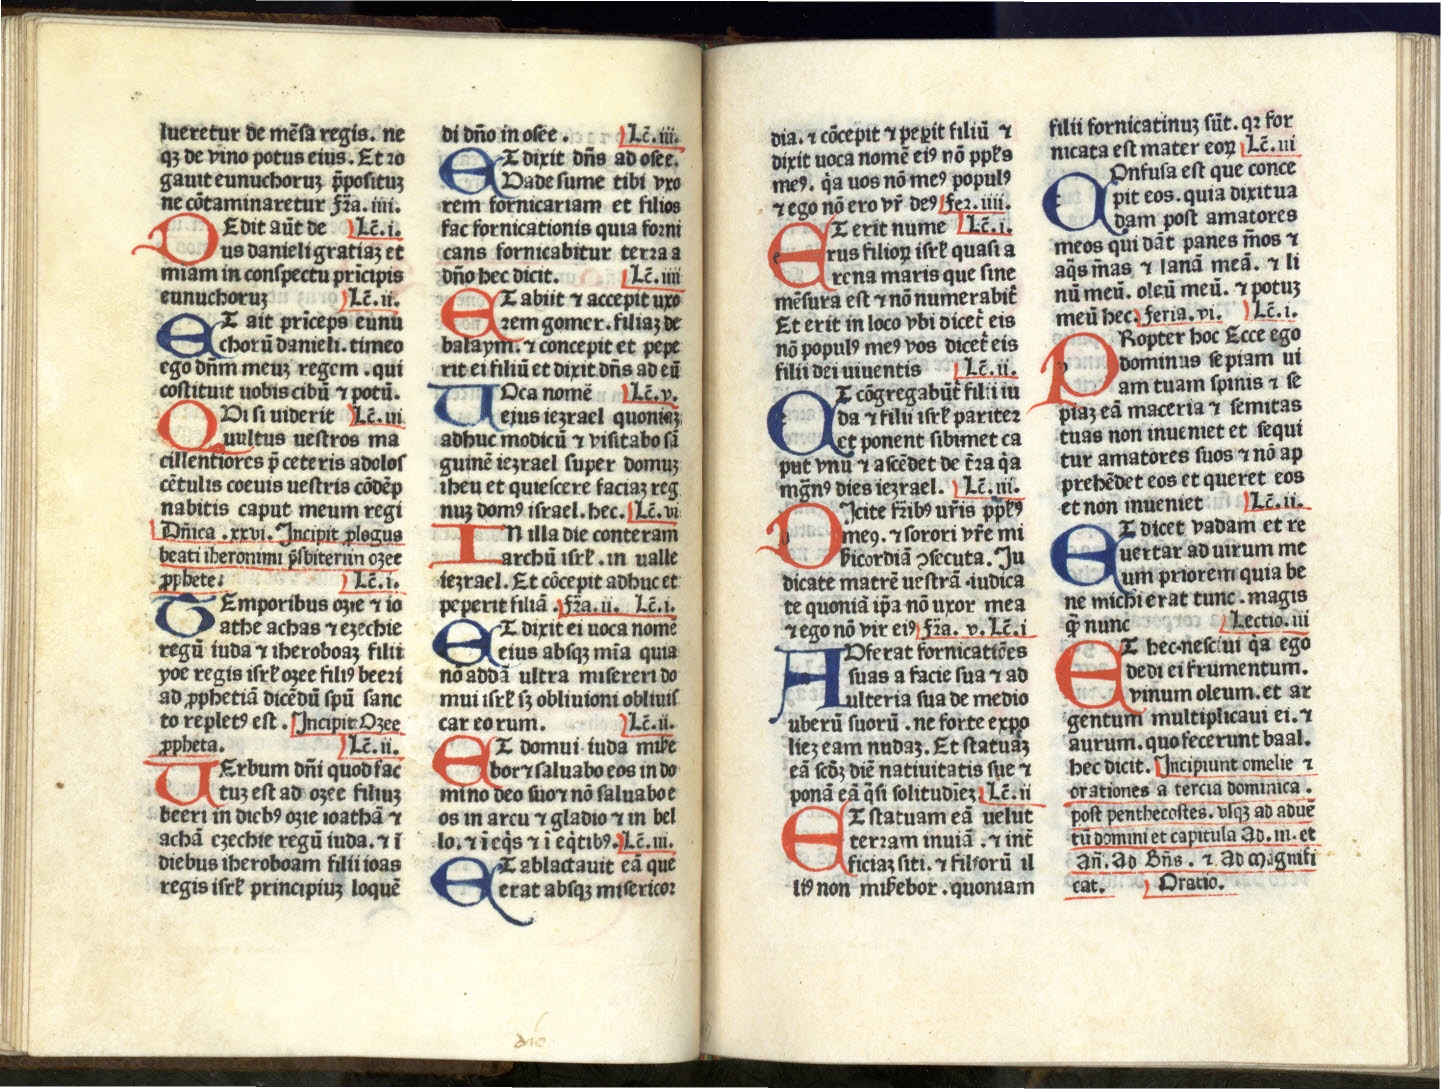 lueretur de mēſa regis. ne
qȝ de vino potus eius. Et ro
gauit eunuchoruȝ p̄poſituȝ
ne cōtaminaretur fr̄a. iiii.
DEdit aūt de Lc̄. i.
us danieli gratiaȝ et
miam in conſpectu prīcipis
eunuchoruȝ Lc̄. ii.
ET ait prīceps eunu
chorū danieli. timeo
ego dn̄m meuȝ regem. qui
coſtituit uobis cibū ⁊ potū.
QVi ſi uiderit Lc̄. iii
uultus ueſtros ma
cillentiores p̄ ceteris adoloſ
cētulis coeuis ueſtris cōdēp
nabitis caput meum regi
Dn̄ica .xxvi. Incipit ꝓlogus
beati iheronimi p̄ſbiteri in oȝee
ꝓphete: Lc̄. i.
TEmporibus oȝie ⁊ io
athe achas ⁊ eȝechie
regū iuda ⁊ iheroboaȝ filii
yoe regis iſrl̄ oȝee filiꝰ beeri
ad ꝓphetiā dicēdū ſpū ſanc
to repletꝰ eſt. Incipit Oȝee
ꝓpheta. Lc̄. ii.
VErbum dn̄i quod fac
tuȝ eſt ad oȝee filiuȝ
beeri in diebꝰ oȝie ioathā ⁊
achā eȝechie regū iuda. ⁊ ī
diebus iheroboam filii ioas
regis iſrl̄ principiuȝ loquē
di dn̄o in oſee. Lc̄. iii.
ET dixit dn̄s ad oſee.
Vade ſume tibi vxo
rem fornicariam et filios
fac fornicationis quia forni
cans fornicabitur terra a
dn̄o hec dicit. Lc̄. iiii
ET abiit ⁊ accepit uxo
rem gomer. filiaȝ de
balaym. ⁊ concepit et pepe
rit ei filiū et dixit dn̄s ad eū
VOca nomē Lc̄. v.
eius ieȝrael quoniaȝ
adhuc modicū ⁊ viſitabo ſā
guinē ieȝrael ſuper domuȝ
iheu et quieſcere faciaȝ reg
nuȝ domꝰ iſrael. hec. Lc̄. vi
IN illa die conteram
archū iſrl̄. in ualle
ieȝrael. Et cōcepit adhuc et
peperit filiā. fr̄a. ii. Lc̄. i.
ET dixit ei uoca nomē
eius abſqȝ mīa quia
nō addā ultra miſereri do
mui iſrl̄ ſȝ obliuioni obliuiſ
car eorum. Lc̄. ii.
ET domui iuda miſe
bor ⁊ ſaluabo eos in do
mino deo ſuo ⁊ nō ſaluabo e
os in arcu ⁊ gladio ⁊ in bel
lo. ⁊ ī eq̄s ⁊ ī eq̄tibꝰ. Lc̄. iii.
ET ablactauit eā que
erat abſqȝ miſericor
dia. ⁊ cōcepit ⁊ peꝑit filiū ⁊
dixit uoca nomē eiꝰ nō ppl̄s
meꝰ. q̄a uos nō meꝰ populꝰ
⁊ ego nō ero vr̄ deꝰ fer. iiii.
ET erit nume Lc̄. i.
rus filioꝝ iſrl̄ quaſi a
rena maris que ſine
mēſura eſt ⁊ nō numerabit̄
Et erit in loco vbi dicet̄ eis
nō populꝰ meꝰ vos dicet̄ eis
filii dei uiuentis Lc̄. ii.
ET cōgregabūt̄ filii iu
da ⁊ filii iſrl̄ pariter
et ponent ſibimet ca
put vnū ⁊ aſcēdet de t̄ra q̄a
mḡnꝰ dies ieȝrael. Lc̄. iii.
DIcite fr̄ibꝰ ur̄is ppl̄ꝰ
meꝰ. ⁊ ſorori vr̄e mi
ẜicordiā ꝯſecuta. Iu
dicate matrē ueſtrā. iudica
te quoniā ip̄a nō uxor mea
⁊ ego nō vir eiꝰ fr̄a. v. Lc̄. i
AVferat fornicatiōes
ſuas a facie ſua ⁊ ad
ulteria ſua de medio
uberū ſuorū. ne forte expo
lieȝ eam nudaȝ. Et ſtatuāȝ
eā ſcd̄ȝ diē natiuitatis ſue ⁊
ponā eā q̄ſi ſolitudīeȝ Lc̄. ii
ET ſtatuam eā uelut
terram inuiā. ⁊ int̄
ficiaȝ ſiti. ⁊ filiorū il
liꝰ non miẜebor. quoniam
filii fornicatinuȝ ſūt. qꝛ for
nicata eſt mater eoꝝ Lc̄. iii
COnfuſa eſt que conce
pit eos. quia dixit ua
dam poſt amatores
meos qui dāt panes m̄os ⁊
aq̄s m̄as ⁊ lanā meā. ⁊ li
nū meū. oleū meū. ⁊ potuȝ
meū hec. feria. vi. Lc̄. i.
PRopter hoc Ecce ego
dominus ſepiam ui
am tuam ſpinis ⁊ ſe
piaȝ eā maceria ⁊ ſemitas
tuas non inueniet et ſequi
tur amatores ſuos ⁊ nō ap
prehēdet eos et queret eos
et non inueniet Lc̄. ii.
ET dicet vadam et re
uertar ad uirum me
um priorem quia be
ne michi erat tunc. magis
q̄ꝫ nunc Lectio. iii
ET hec neſciui q̄a ego
dedi ei frumentum.
vinum oleum. et ar
gentum multiplicaui ei. ⁊
aurum. quo fecerunt baal.
hec dicit. Incipiunt omelie ⁊
orationes a tercia dominica.
poſt penthecoſtes. vſqȝ ad aduē
tū domini et capitula Ad. iii. et
Añ. Ad Bn̄s. ⁊ Ad Magnifi
cat. Oratio.